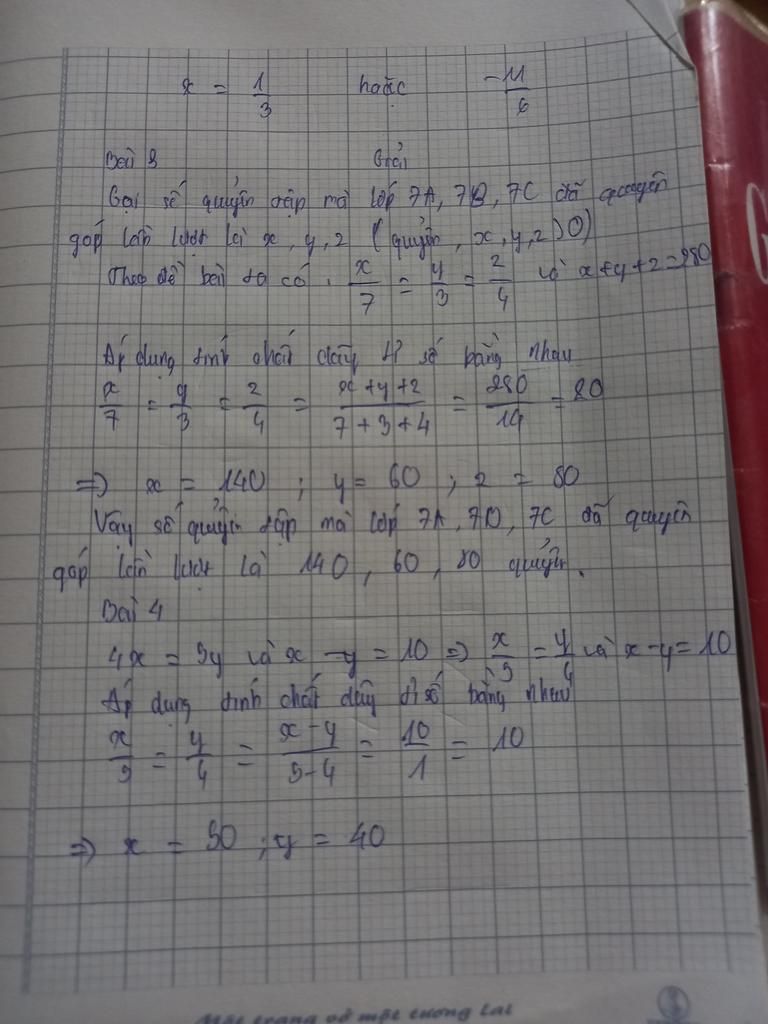 x = 1/3 hoặc -11/6
Bài 3 Giải
Gọi số quyển tập mà lớp 7A, 7B, 7C đã quyên
góp lần lượt là x, y, z (quyển, x, y, z > 0)
Theo đề bài ta có: x/7 = y/3 = z/4 và x+y+z=280
Áp dụng tính chất dãy tỉ số bằng nhau
x/7 = y/3 = z/4 = x+y+z/7+3+4 = 280/14 = 20
=> x = 140 ; y = 60 ; z = 80
Vậy số quyển tập mà lớp 7A, 7B, 7C đã quyên
góp lần lượt là 140, 60, 80 quyển.
Bài 4
4x = 5y và x - y = 10 => x/5 = y/4 và x-y = 10
Áp dụng tính chất dãy tỉ số bằng nhau
x/5 = y/4 = x-y/5-4 = 10/1 = 10
=> x = 50 ; y = 40
Một trang vở một tương lai